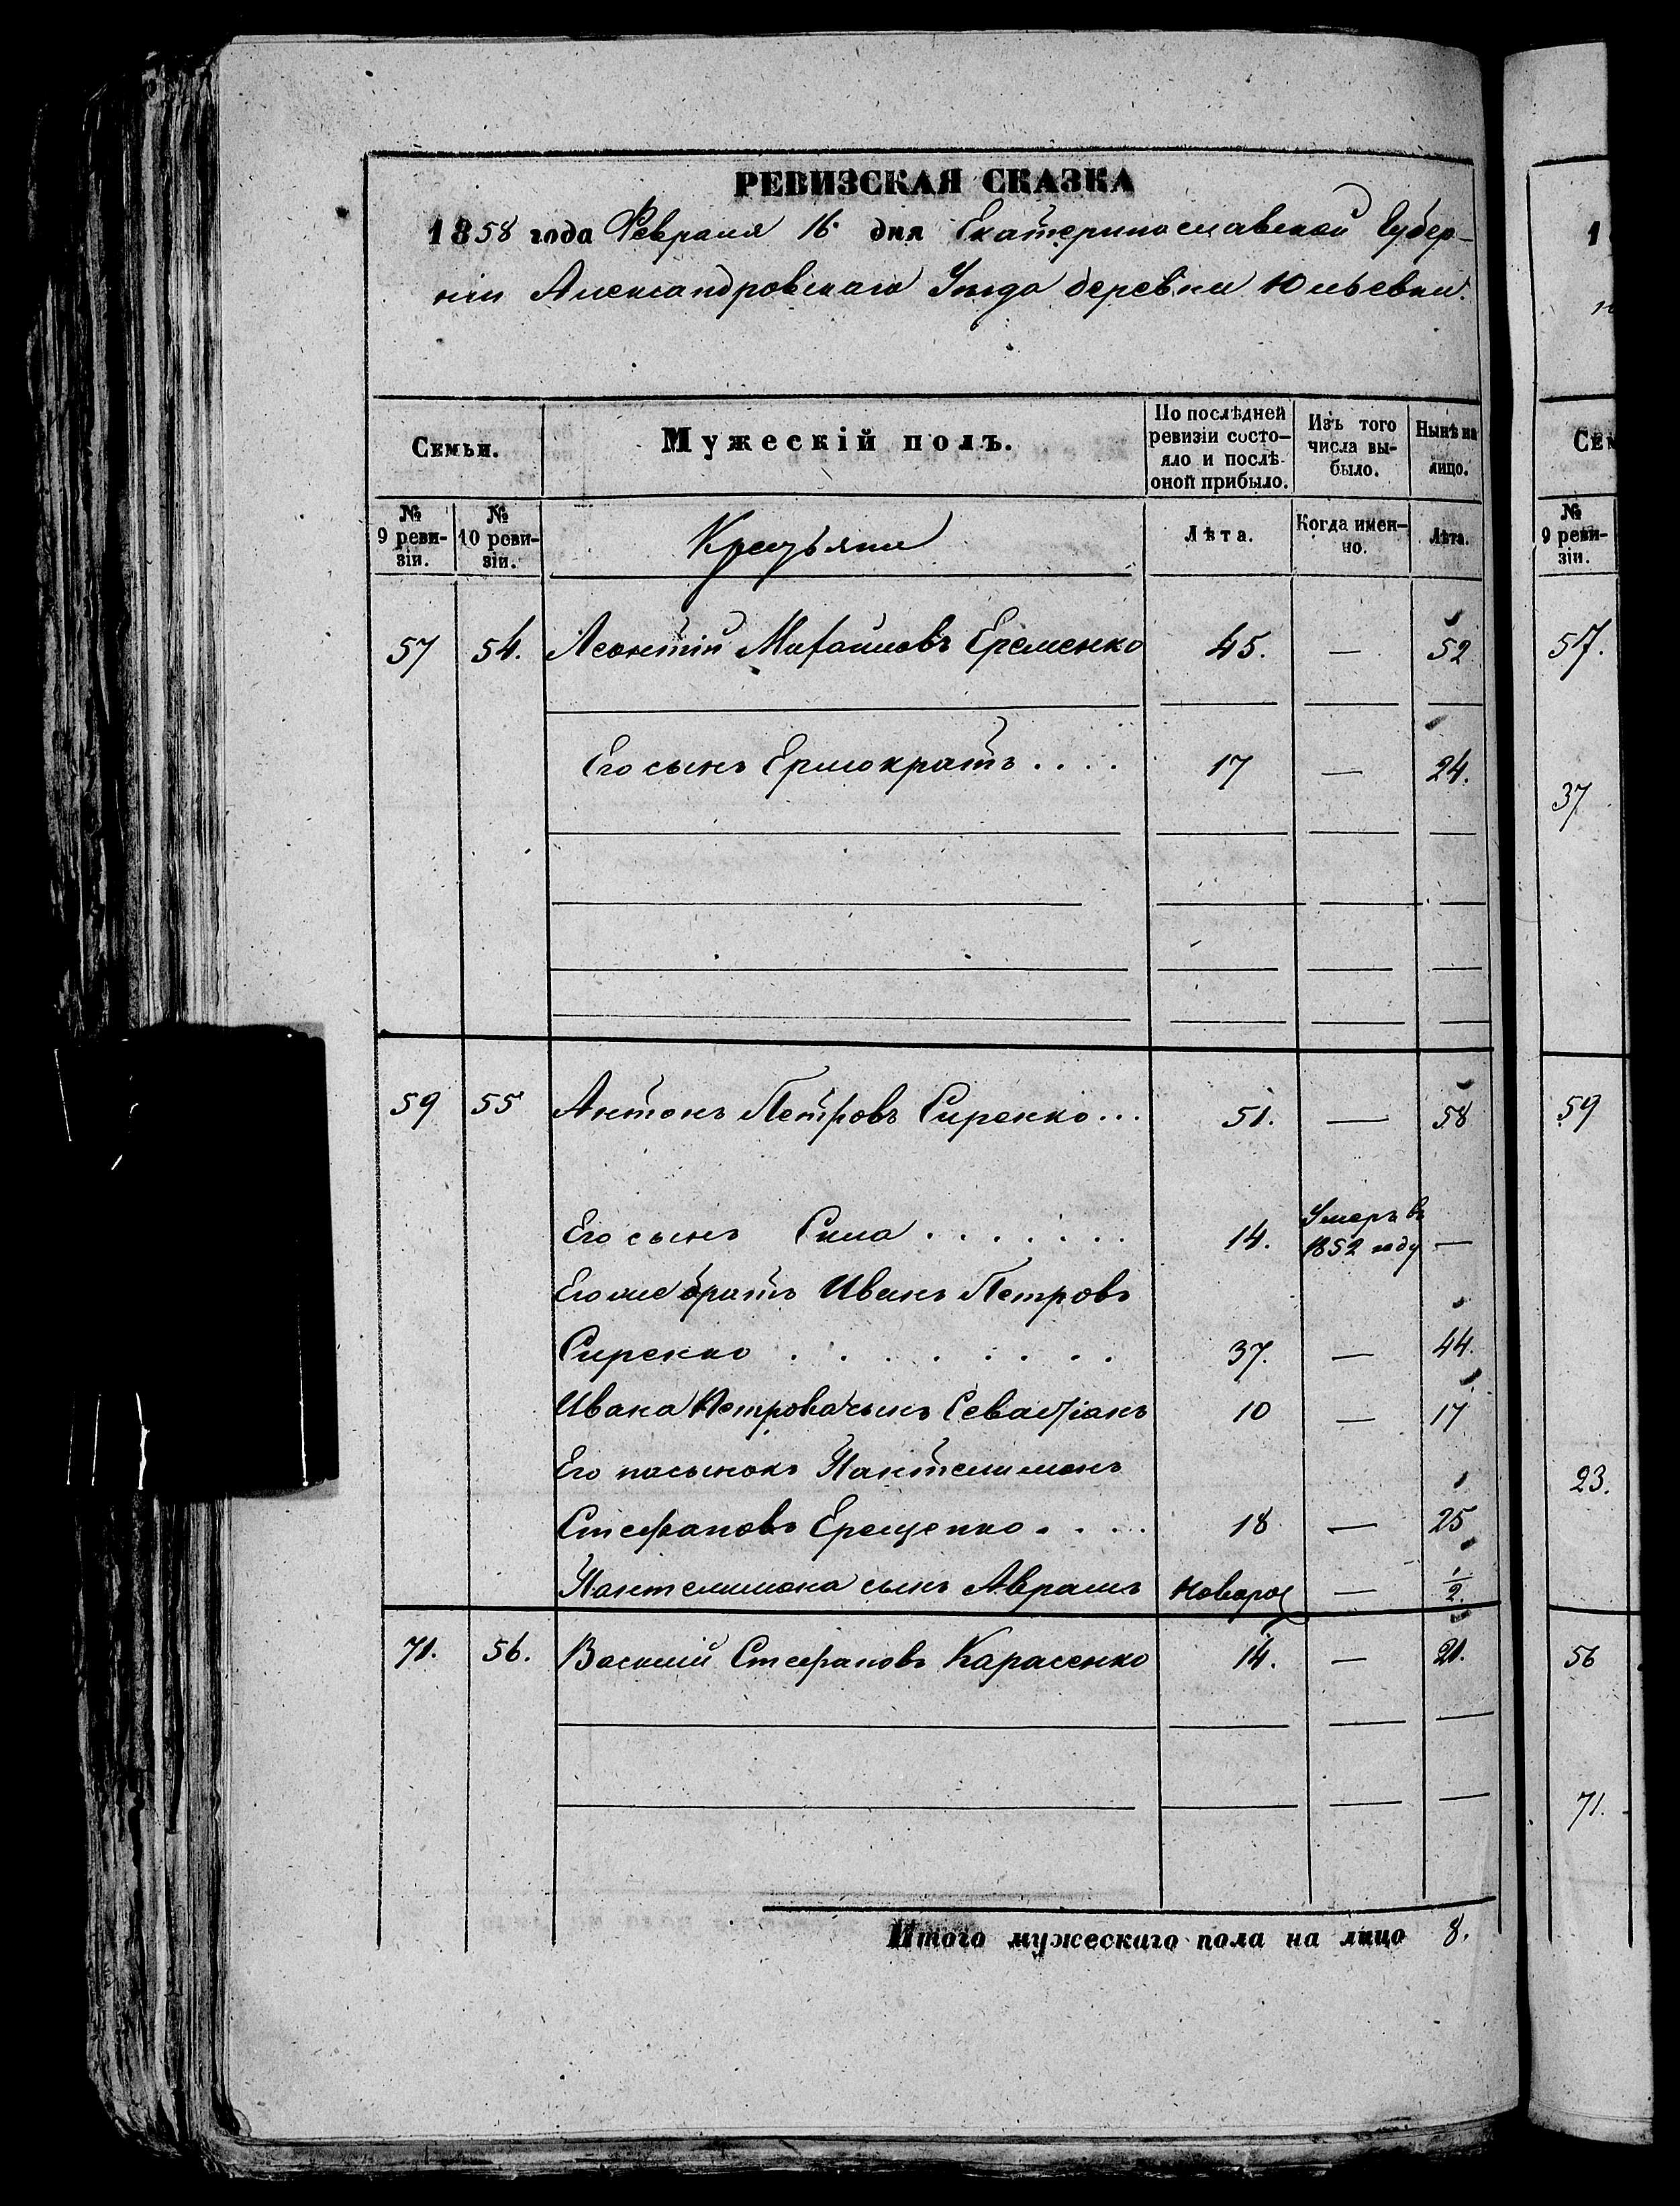 РЕВИЗСКАЯ СКАЗКА
1858 года Февраля 16 дня Екатеринославской Губер-
ніи Александровскаго Уезда деревни Юльевки.
Семьи. Мужескій полъ. По послѣдней ревизіи состо-яло и послѣ оной прибыло. Изъ того числа вы-было. Нынѣ на лицо.
№ 9 реви-зіи. № 10 реви-зіи. Крестьяне Лѣта. Когда имен-но. Лѣта.
57 54. Леонтій Михайловъ Еременко 45. — 52
Его сынъ Ермократъ . . . . 17 — 24.
59 55 Антонъ Петровъ Сиренко... 51. — 58
Его сынъ Сила . . . . . . . 14. Умеръ въ 1852 году —
Его же братъ Иванъ Петровъ
Сиренко . . . . . . . . 37. — 44.
Ивана Петрова сынъ Севастіанъ 10 — 17
Его пасынокъ Пантелимонъ
Стефановъ Ерещенко . . . . 18 — 25
Пантелимона сынъ Аврамъ новорож — 1/2.
71. 56. Василій Стефановъ Карасенко 14. — 21.
Итого мужескаго пола на лицо 8.
1
Сем
№ 9 реви-зіи.
57.
37
59
23.
56
71.